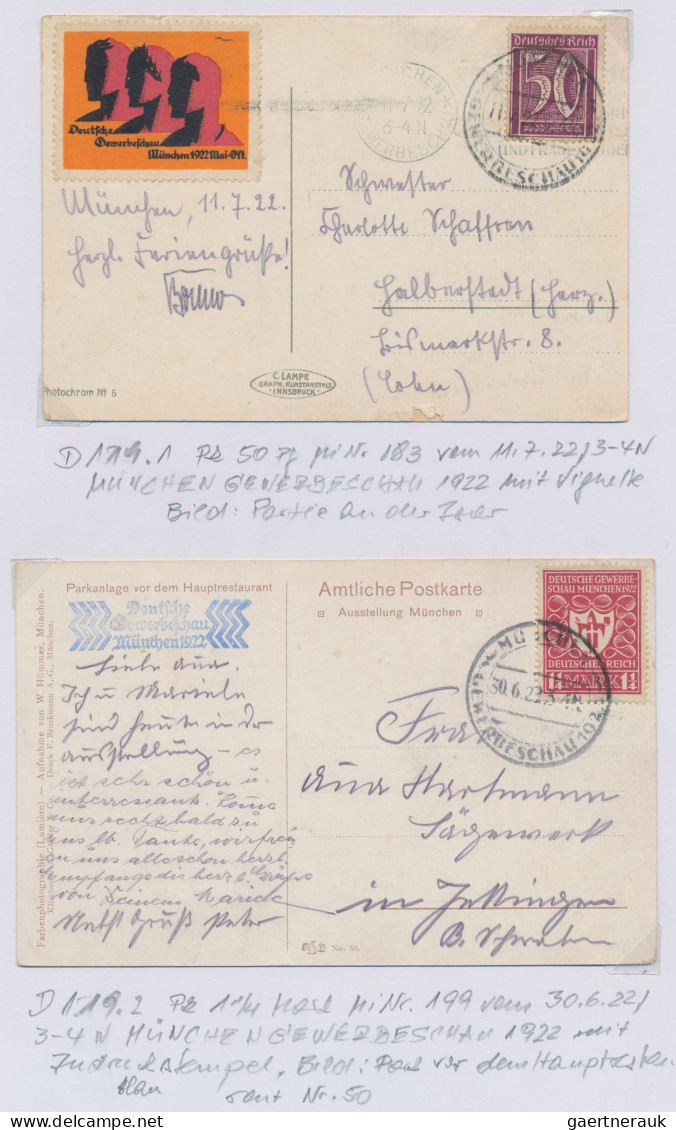 Deutsche
Gewerbeschau
München 1922 Mai-Okt.
Deutsches Reich
50
MÜNCHEN
11.7.22
3-4 N
GEWERBESCHAU
GEWERBESCHAU 192
UND
München, 11.7.22.
Herzl. Feriengrüße!
Schwester
Charlotte Schaffran
Halberstadt (Harz.)
Bismarkstr. 8.
Photochrom Nº 5
C. LAMPE
GRAPH. KUNSTANSTALT
INNSBRUCK
D 1719.1 50 Mi Nr. 183 vom 11.7.22/3-4N
MÜNCHEN GEWERBESCHAU 1922 mit Vignette
Bild: Partie an der Isar
Parkanlage vor dem Hauptrestaurant
Deutsche
Gewerbeschau
München 1922
Amtliche Postkarte
Ausstellung München
DEUTSCHE GEWERBE-
SCHAU MUENCHEN 1922
DEUTSCHES REICH
1¼ MARK 1¼
30.6.22
GEWERBESCHAU 192
Liebe Ana.
Ich u.
sind heute in der
Ausstellung – es
ist sehr schön u.
interressant. Komme
nur recht bald zu
uns lb. Tante, wir freuen
uns alle schon herzl.
herzl. Grüße
von Deinem
Nebst Gruß Peter
Frau
Ana Hartmann
Sägewerk
in Jettingen
B. Schwaben
No. 50.
Farbenphotographie (Lumière) — Aufnahme von W. Hümmer, München.
Druck F. Bruckmann A.-G., München.
D 1719.2 1¼ Mark Mi Nr. 199 vom 30.6.22/
3-4 N MÜNCHEN GEWERBESCHAU 1922 mit
stempel, Bild: vor dem Hauptrestau
blau rant Nr. 50
gaertnerauk